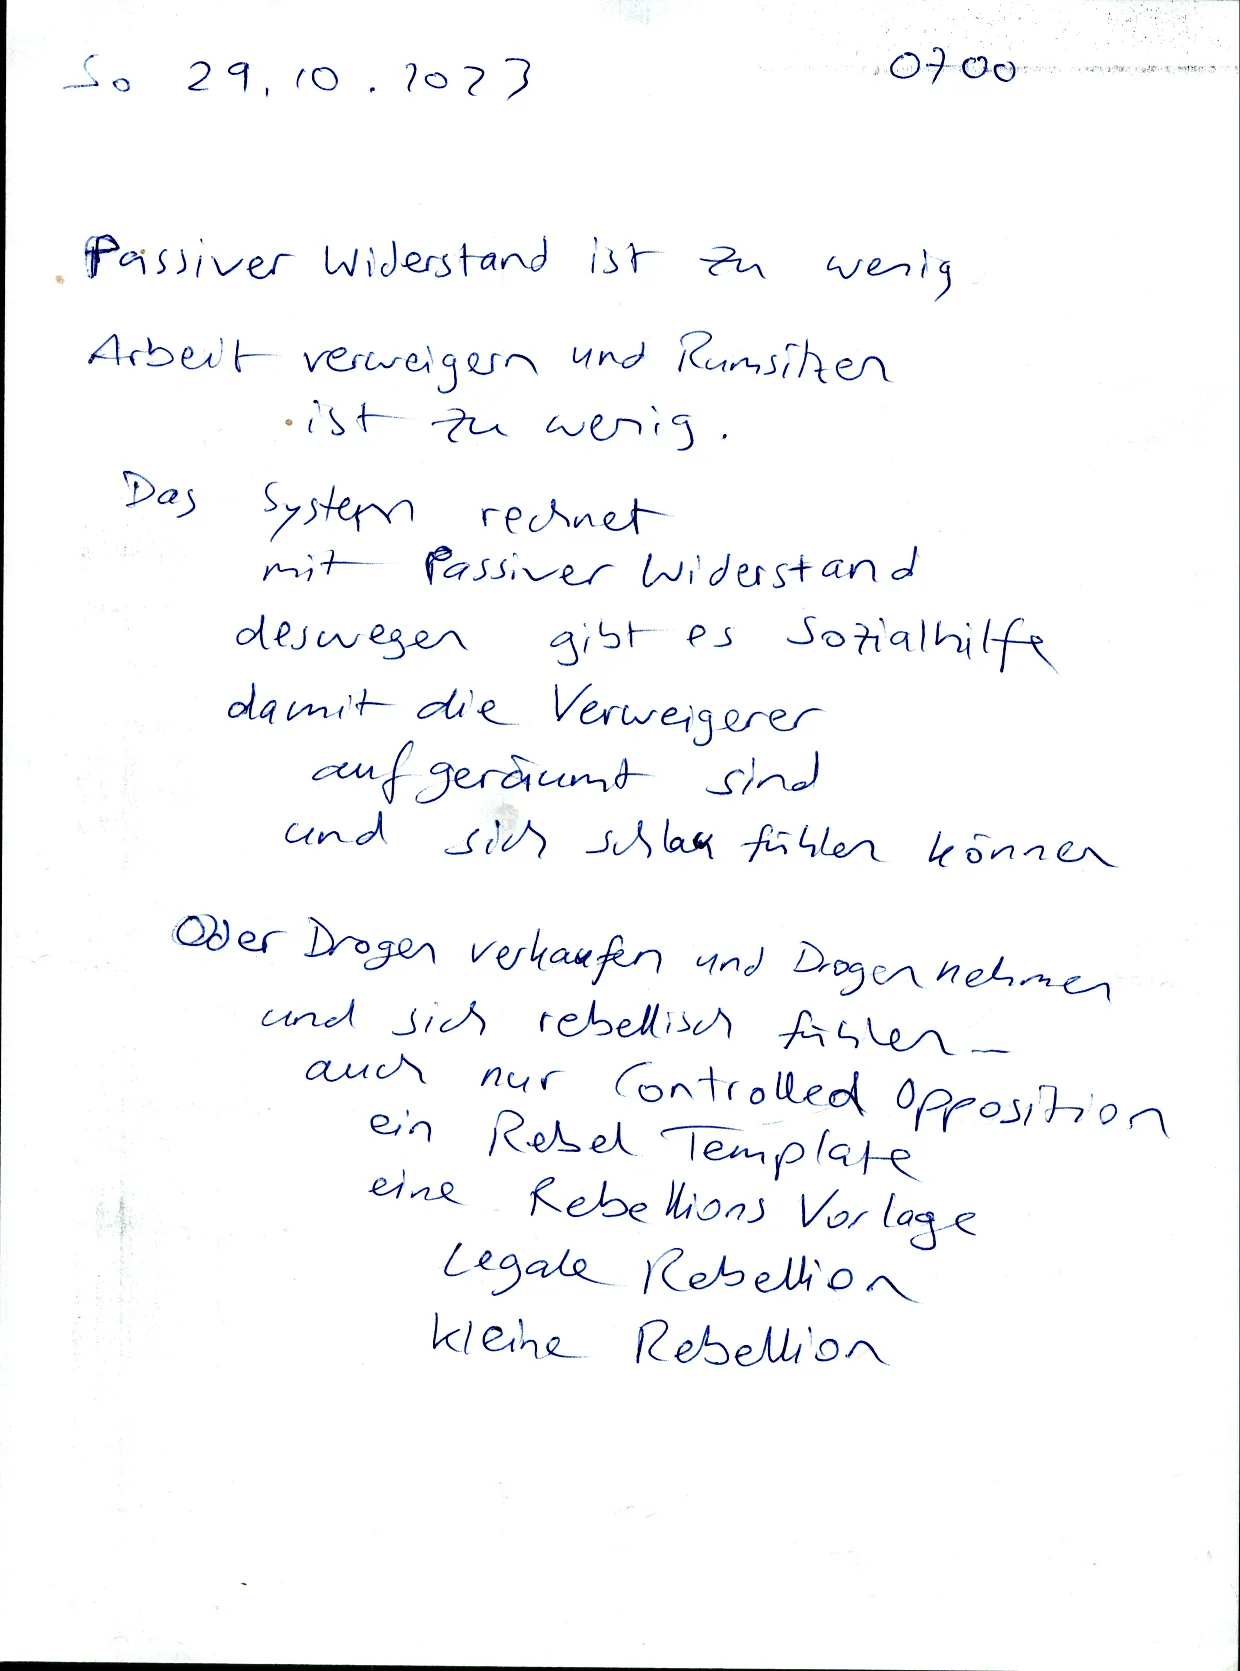 So 29.10.2023 0700
Passiver Widerstand ist zu wenig
Arbeit verweigern und Rumsitzen
ist zu wenig.
Das System rechnet
mit Passiver Widerstand
deswegen gibt es Sozialhilfe
damit die Verweigerer
aufgeräumt sind
und sich schlau fühlen können
Oder Drogen verkaufen und Drogen nehmen
und sich rebellisch fühlen –
auch nur Controlled Opposition
ein Rebel Template
eine Rebellions Vorlage
Legale Rebellion
kleine Rebellion